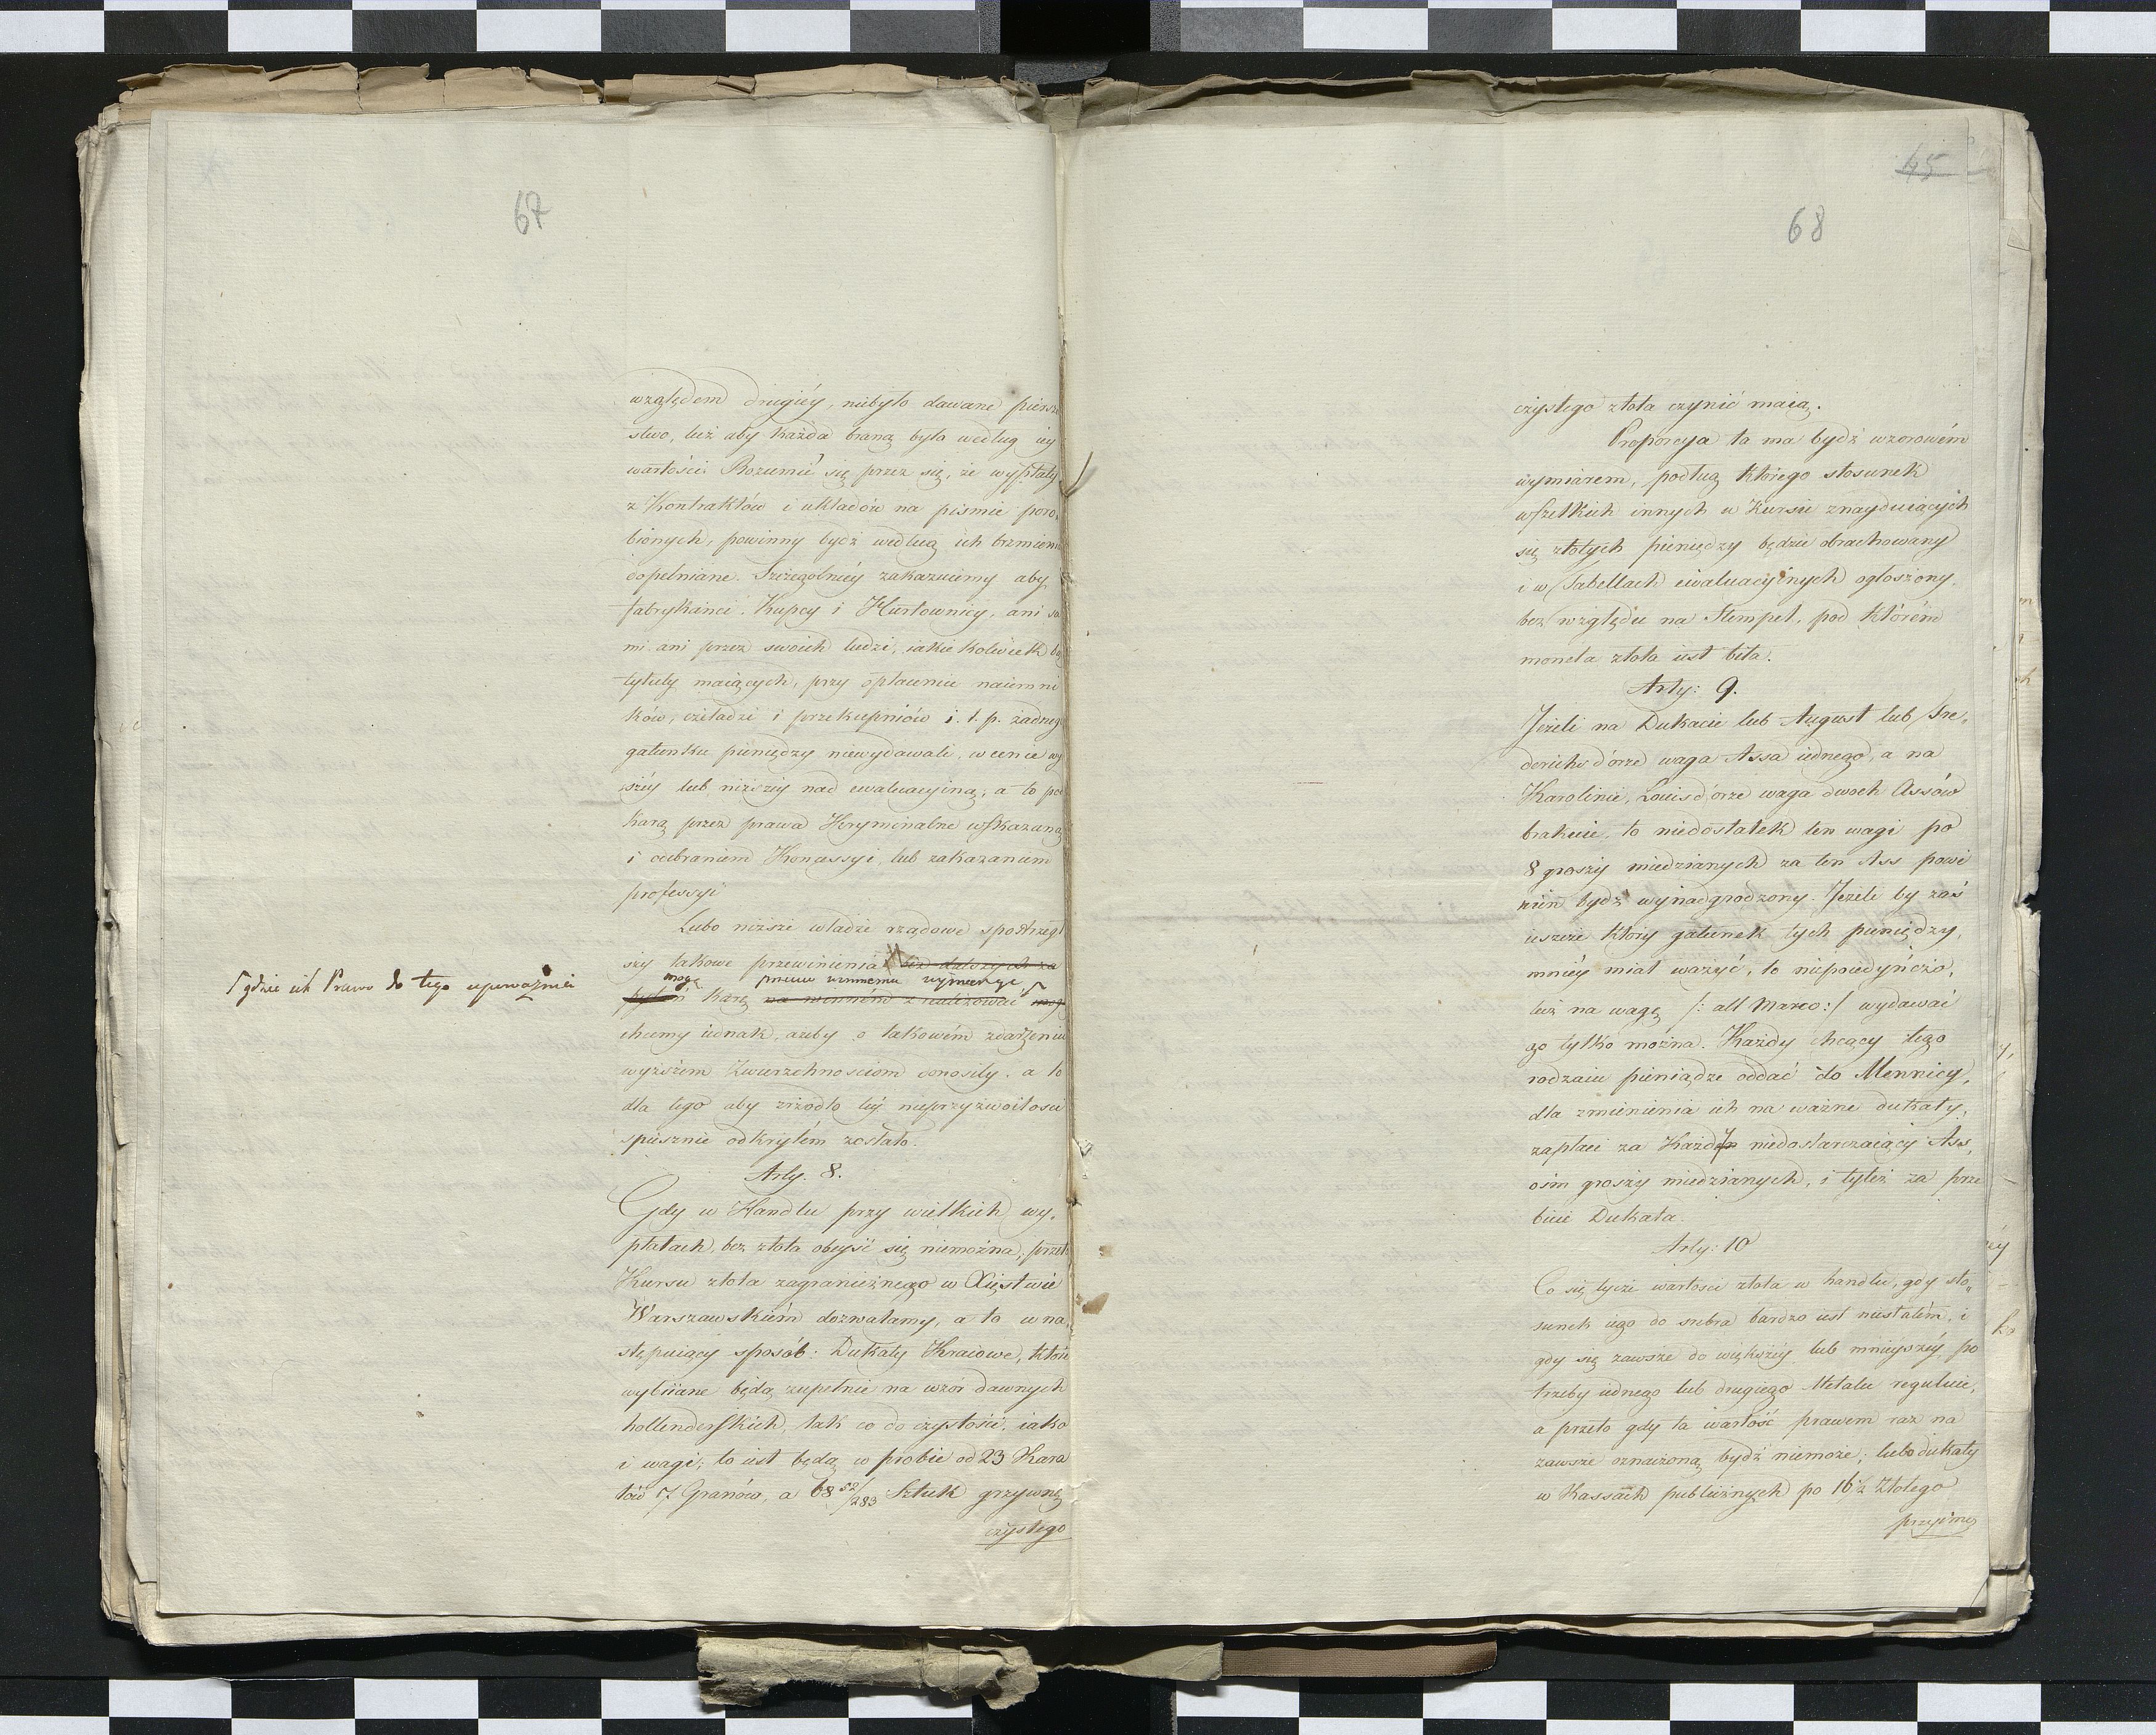 67
względem drugiéy, niebyło dawane piersze
stwo, leż aby każda braną była według iéy
wartości. Rozumié się przez się, że wypłaty
z Kontraktów i układów na pismie poro,
bionych, powinny bydź według ich brzmienia
dopełniane. Szczególniéy zakazuiemy aby
fabrykanci, Kupcy i Hurtownicy, ani sa
mi ani przez swoich ludzi, iakie kolwiek bą
tytuły maiących, przy opłacenie naiemni
ków, czeladzi i przekupniów i. t. p. żadnego
gatunku pieniędzy niewydawali, w cenie wy
széy lub niższéy nad ewaluacyiną, a to pod
karą przez prawa Kryminalne wskazaną
i odebraniem Koncessyi, lub zakazaniem
professyi
Lubo niższe władze rządowe spostrzegł
szy takowe przewinienia bez dalszych za
mogą przeciw winnemu wymierzyć
Γ gdzie ich Prawo do tego upoważnia
karę na winném zrealizować mogą
chcemy iednak, ażeby o takowém zdarzeniu
wyższém Zwierzchnosciom donosiły, a to
dla tego aby zrzodło téy nieprzyzwoitosci
spiesznie odkrytém zostało.
Arty. 8.
Gdy w Handlu przy wielkich wy,
płatach, bez złota obeyść się niemożna, przeto
Kursu złota zagranicznego w Xięstwie
Warszawskiém dozwalamy, a to w na,
stępuiący sposób: Dukaty Kraiowe, które
wybiiane będą zupełnie na wzór dawnych
hollenderskich, tak co do czystości, iako
i wagi; to iest będą w probie od 23 Kara
tów 7 Granów, a 68 52/283 Sztuk grzywnę
czystego
45
68
czystego złota czynić maią.
Proporcya ta ma bydź wzorowém
wymiarem, podług którego stosunek
wszelkich innych w Kursie znayduiących
się złotych pieniędzy będzie obrachowany
i w Tabellach ewaluacyinych ogłoszony,
bez względu na Stempel, pod którém
moneta złota iest bita.
Arty: 9.
Jeżeli na Dukacie lub August lub Fre,
derichs d'orze waga Assa iednego, a na
Karolinie, Louisd'orze waga dwoch Assów
brakuie, to niedostatek ten wagi po
8 groszy miedzianych za ten Ass powi
nien bydź wynadgrodzony. Jeżeli by zaś
ieszcze który gatunek tych pieniędzy,
mniéy miał ważyć, to niepoiedyńczo,
leż na wagę /: all Marco :/ wydawać
go tylko można. Każdy chcący tego
rodzaiu pieniądze oddać do Mennicy,
dla zmienienia ich na ważne dukaty,
zapłaci za Każdy niedostarczaiący Ass,
ośm groszy miedzianych, i tyleż za prze
bicie Dukata.
Arty: 10
Co się tycze wartosci złota w handlu, gdy sto,
sunek iego do srebra bardzo iest niestałém, i
gdy się zawsze do większéy lub mnieyszéy po
trzeby iednego lub drugiego Metalu reguluie,
a przeto gdy ta wartość prawem raz na
zawsze oznaczoną bydź niemoże; lubo dukaty
w Kassach publicznych po 16½ Złotego
przyimą